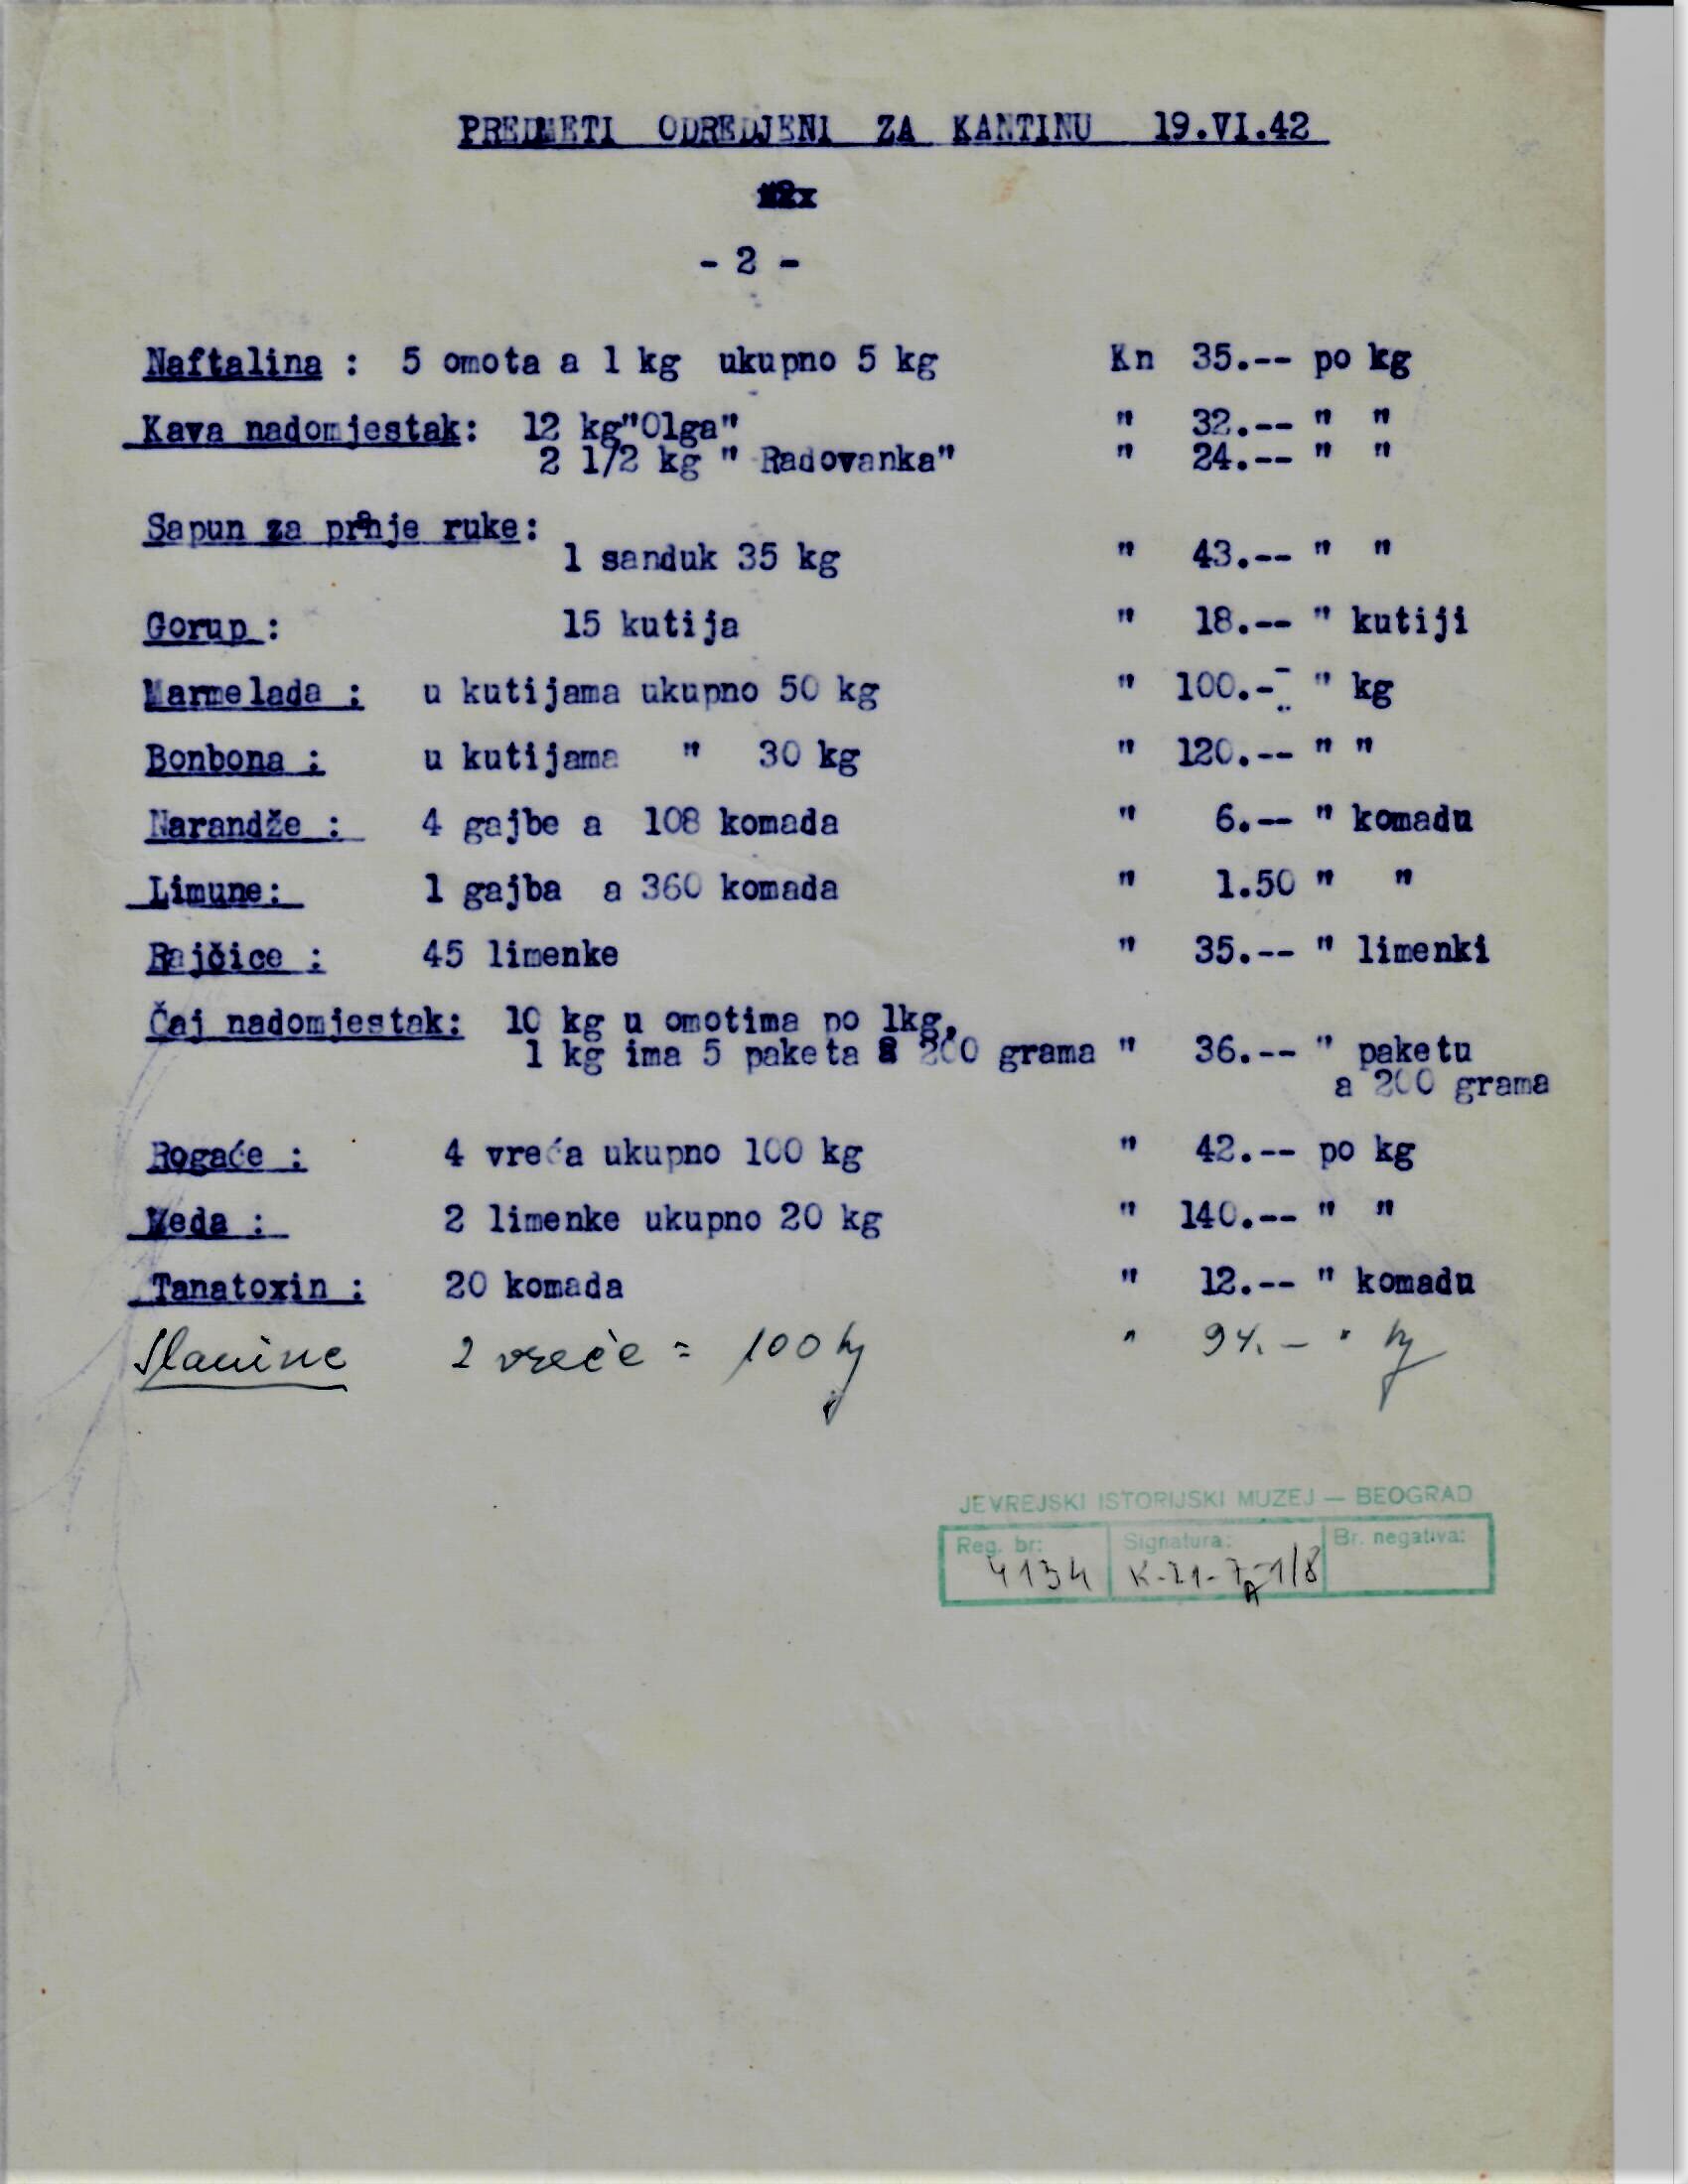 PREDMETI ODREDJENI ZA KANTINU 19.VI.42
- 2 -
Naftalina : 5 omota a 1 kg ukupno 5 kg Kn 35.-- po kg
Kava nadomjestak: 12 kg"Olga" " 32.-- " "
2 1/2 kg " Radovanka" " 24.-- " "
Sapun za pranje ruke:
1 sanduk 35 kg " 43.-- " "
Gorup : 15 kutija " 18.-- " kutiji
Marmelada : u kutijama ukupno 50 kg " 100.-- " kg
Bonbona : u kutijama " 30 kg " 120.-- " "
Narandže : 4 gajbe a 108 komada " 6.-- " komadu
Limune: 1 gajba a 360 komada " 1.50 " "
Rajčice : 45 limenke " 35.-- " limenki
Čaj nadomjestak: 10 kg u omotima po 1kg,
1 kg ima 5 paketa a 200 grama " 36.-- " paketu
a 200 grama
Rogaće : 4 vreća ukupno 100 kg " 42.-- po kg
Meda : 2 limenke ukupno 20 kg " 140.-- " "
Tanatoxin : 20 komada " 12.-- " komadu
Slanine 2 vreće = 100 kg " 94.- " kg
JEVREJSKI ISTORIJSKI MUZEJ — BEOGRAD
Reg. br: Signatura: Br. negativa:
4134 K-21-7A-1/8